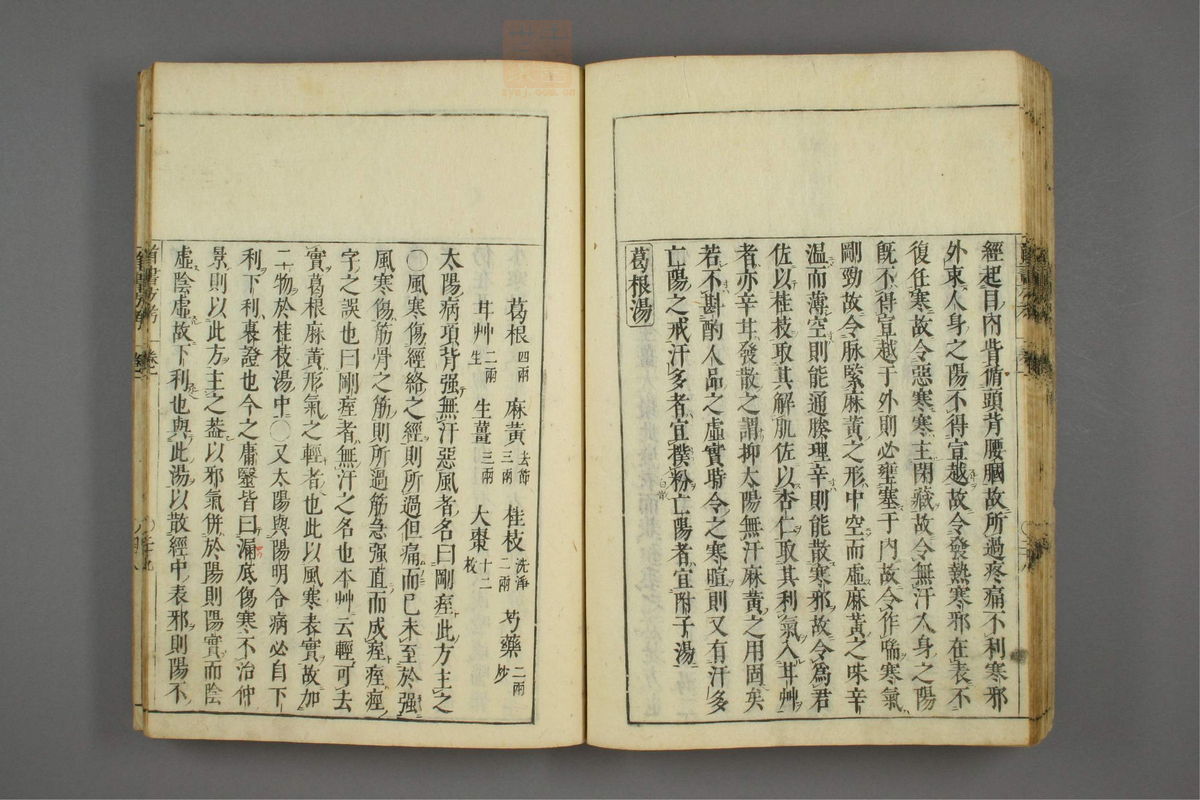 經起目內眥循頭背腰膕故所過疼痛不利寒邪
外束人身之陽不得宣越故令發熱寒邪在表不
復任寒故令惡寒寒主閉藏故令無汗人身之陽
旣不得宣越于外則必壅塞于內故令作喘寒氣
剛勁故令脉緊麻黃之形中空而虛麻黃之味辛
温而薄空則能通腠理辛則能散寒邪故令爲君
佐以桂枝取其解肌佐以杏仁取其利氣入甘艸
者亦辛甘發散之謂抑太陽無汗麻黃之用固矣
若不斟酌人品之虛實時令之寒暄則又有汗多
亡陽之戒汗多者宜撲粉亡陽者宜附子湯
葛根湯
葛根四兩 麻黃去節三兩 桂枝洗淨二兩 芍藥二兩炒
甘艸二兩生 生薑三兩 大棗十二枚
太陽病項背强無汗惡風者名曰剛痓此方主之
○風寒傷經絡之經則所過但痛而已未至於强
風寒傷筋骨之筋則所過筋急强直而成痓痓痙
字之誤也曰剛痓者無汗之名也本艸云輕可去
實葛根麻黃形氣之輕者也此以風寒表實故加
二物於桂枝湯中○又太陽與陽明合病必自下
利下利裏證也今之庸醫皆曰漏底傷寒不治仲
景則以此方主之葢以邪氣併於陽則陽實而陰
虛陰虛故下利也與此湯以散經中表邪則陽不